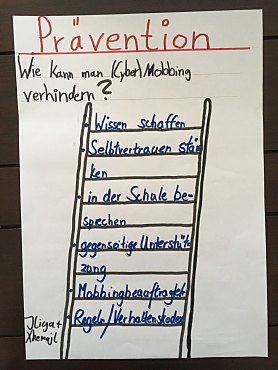 Prävention
Wie kann man (Cyber)Mobbing
verhindern?
• Wissen schaffen
• Selbstvertrauen stär
ken
• in der Schule be-
sprechen
• gegenseitige Unterstüt
zung
• Mobbingbeauftragter
• Regeln/Verhaltenskodex